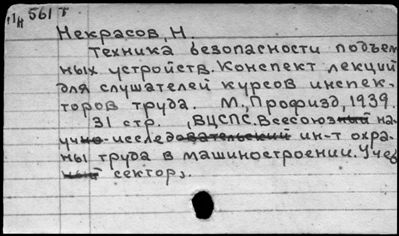 561 т
Некрасов, Н.
Техника безопасности подъем
ных устройств. Конспект лекций
для слушателей курсов инспек-
торов труда. М., Профизд, 1939.
31 стр. (ВЦСПС. Всесоюзный на-
учно-исследовательский ин-т охра-
ны труда в машиностроении. Учеб
ный сектор).